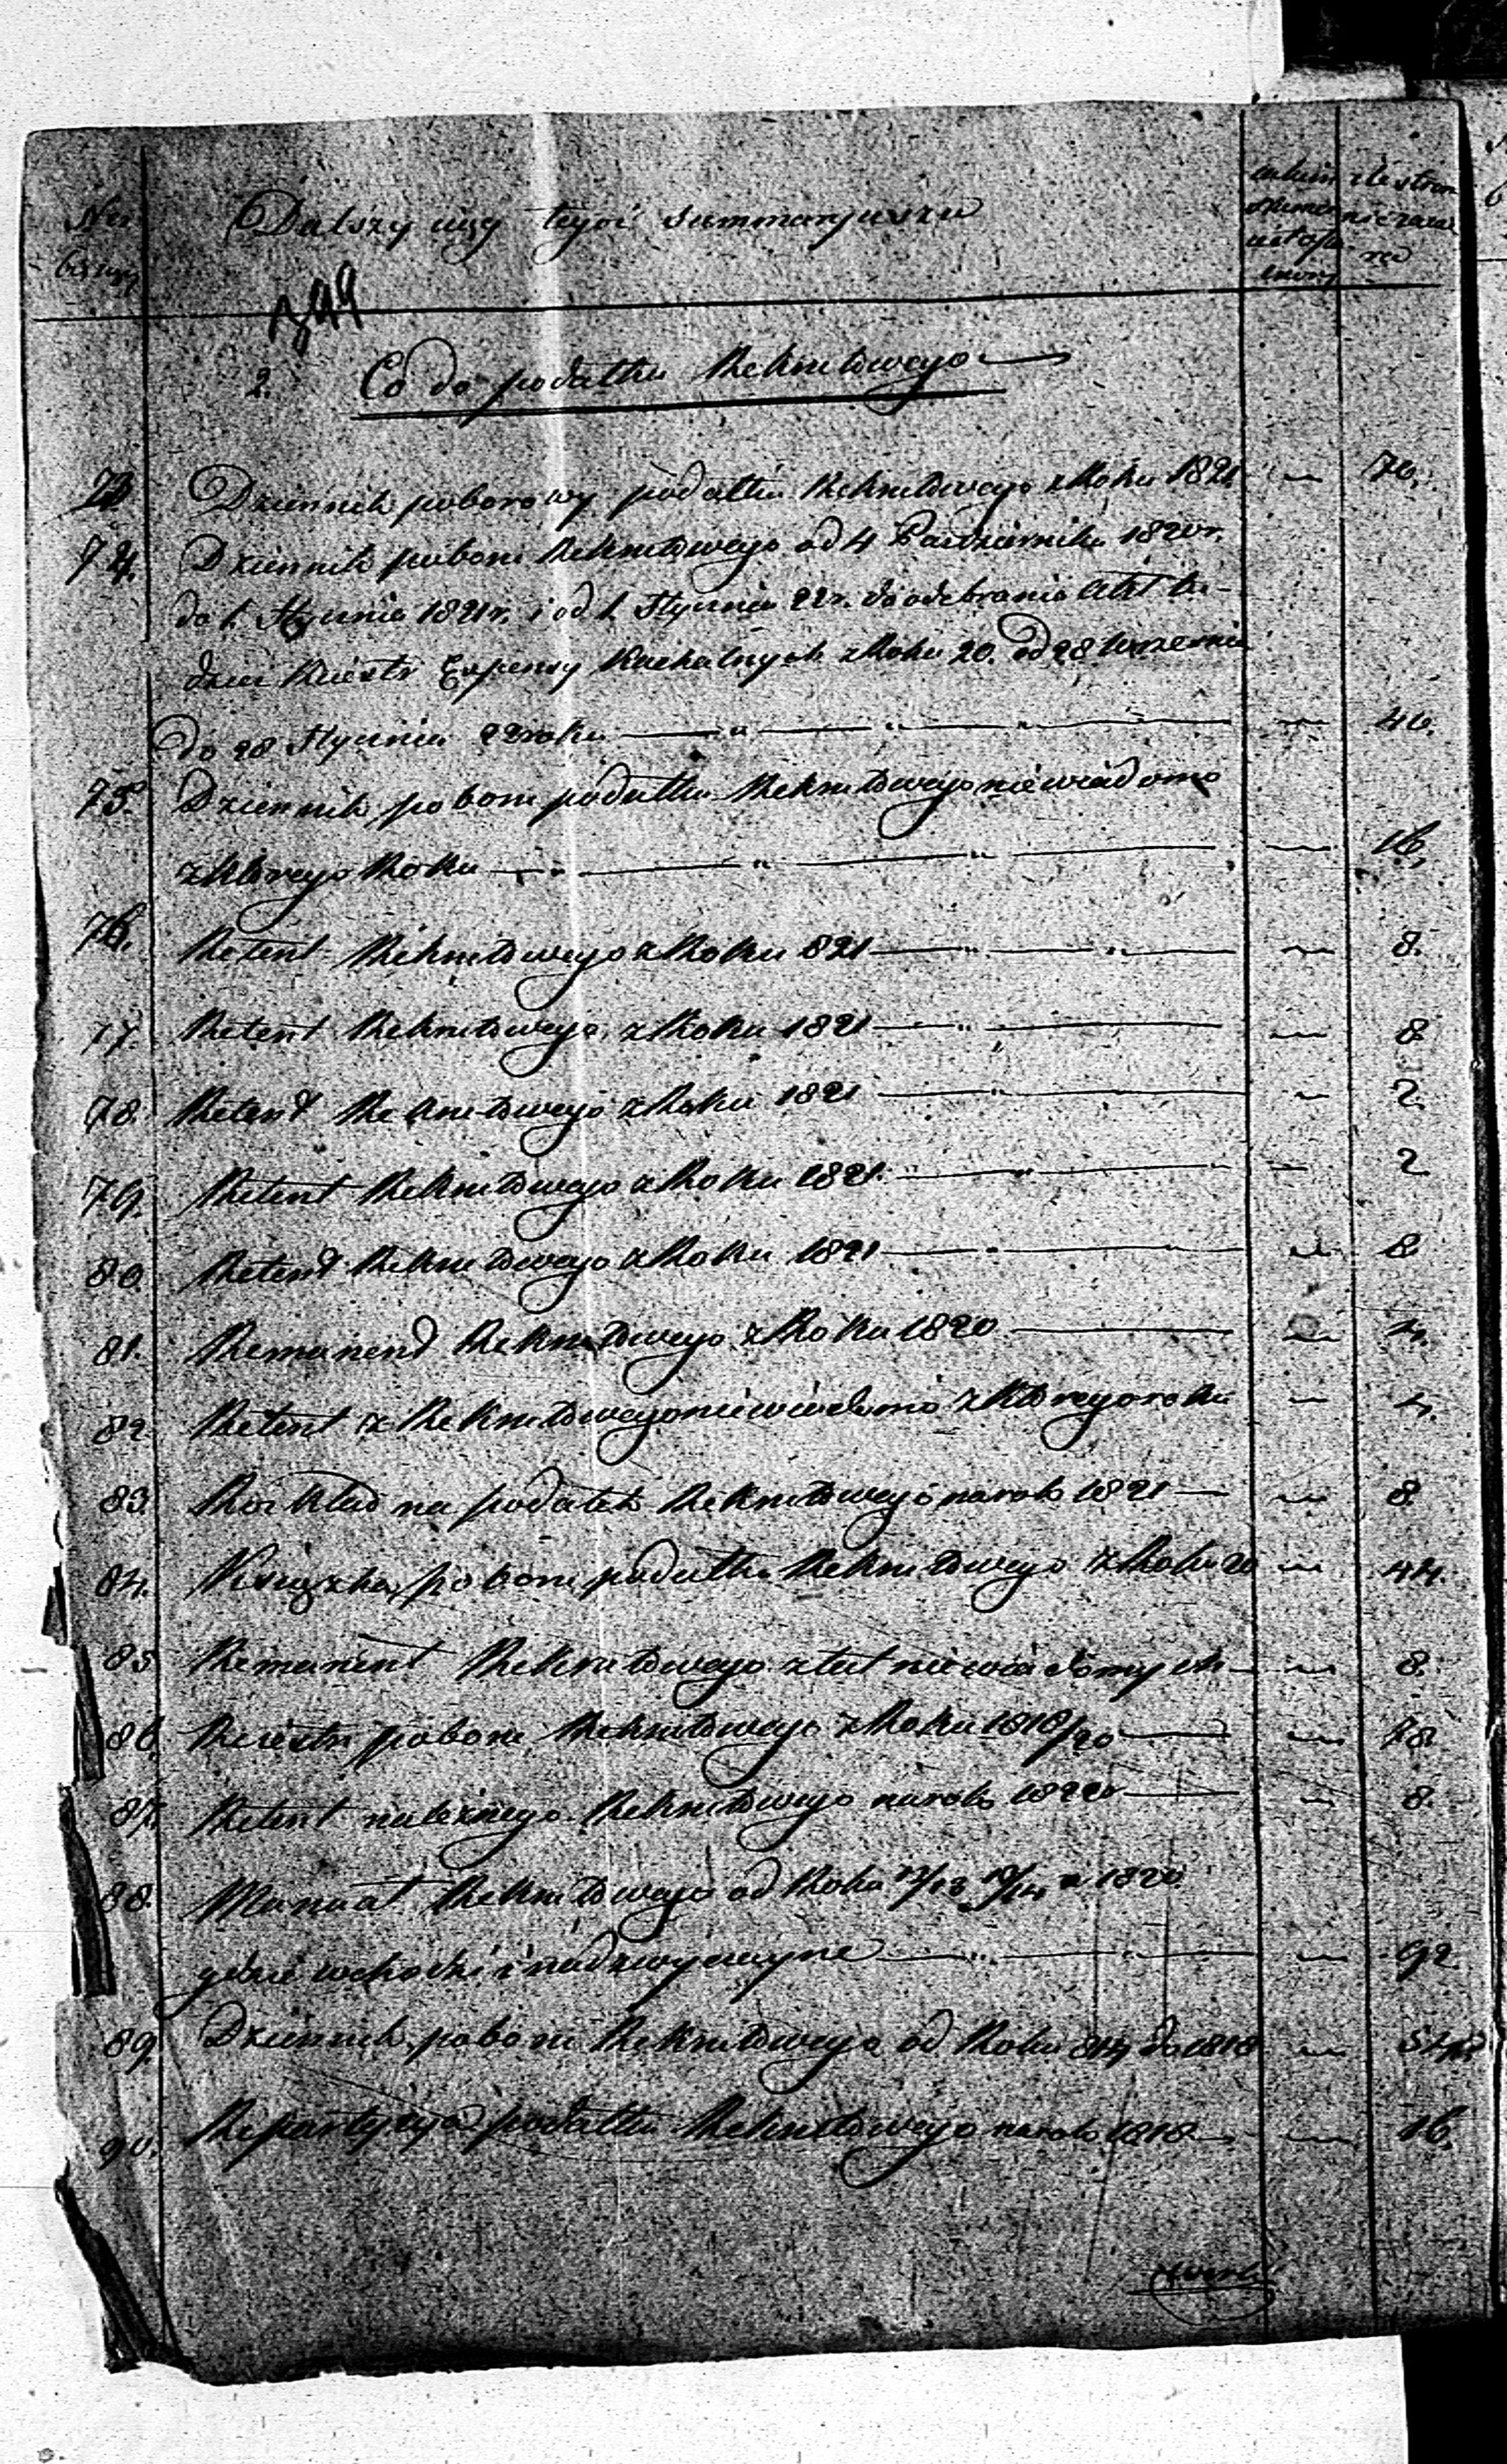 Nro
bieżący
Dalszy ciąg tegoż Summaryuszu
ile stron
nie zawie
ra
2. Co do podatku Rekrutowego
73 Dziennik poborowy podatku Rekrutowego z Roku 1821 — 70.
74. Dziennik poboru Rekrutowego od 4 Października 1820 r.
do 1. Stycznia 1821 r. i od 1. Stycznia 22 r. do odebrania
Expensy Kachalnych z Roku 20. od 28 Września
do 28 Stycznia 22 roku — 46.
75. Dziennik poboru podatku Rekrutowego niewiadomo
z którego Roku — 16.
76. Retent Rekrutowego z Roku 821 — 8.
77. Retent Rekrutowego z Roku 1821 — 8
78. Retent Rekrutowego z Roku 1821 — 2.
79. Retent Rekrutowego z Roku 1821. — 2
80. Retent Rekrutowego z Roku 1821 — 8
81. Remanend Rekrutowego z Roku 1820 — 4.
82 Retent z Rekrutowego niewiadomo z którego roku — 4.
83. Rozkład na podatek Rekrutowego na rok 1821 — 8.
84. Książka poboru podatku Rekrutowego z Roku 20 — 44.
85 Remanent Rekrutowego z lat niewiadomych — 8.
86. Reiestr poboru Rekrutowego z Roku 1818/20 — 28.
87. Retent należnego Rekrutowego na rok 1822 r — 8.
88. Manuał Rekrutowego od Roku 12/13 13/14 a 1820
gdzie wchodzi i nadzwyczayne — 92
89. Dziennik poboru Rekrutowego od Roku 814 do 1818 —
90. Repartycya podatku Rekrutowego na rok 1818 — 16.